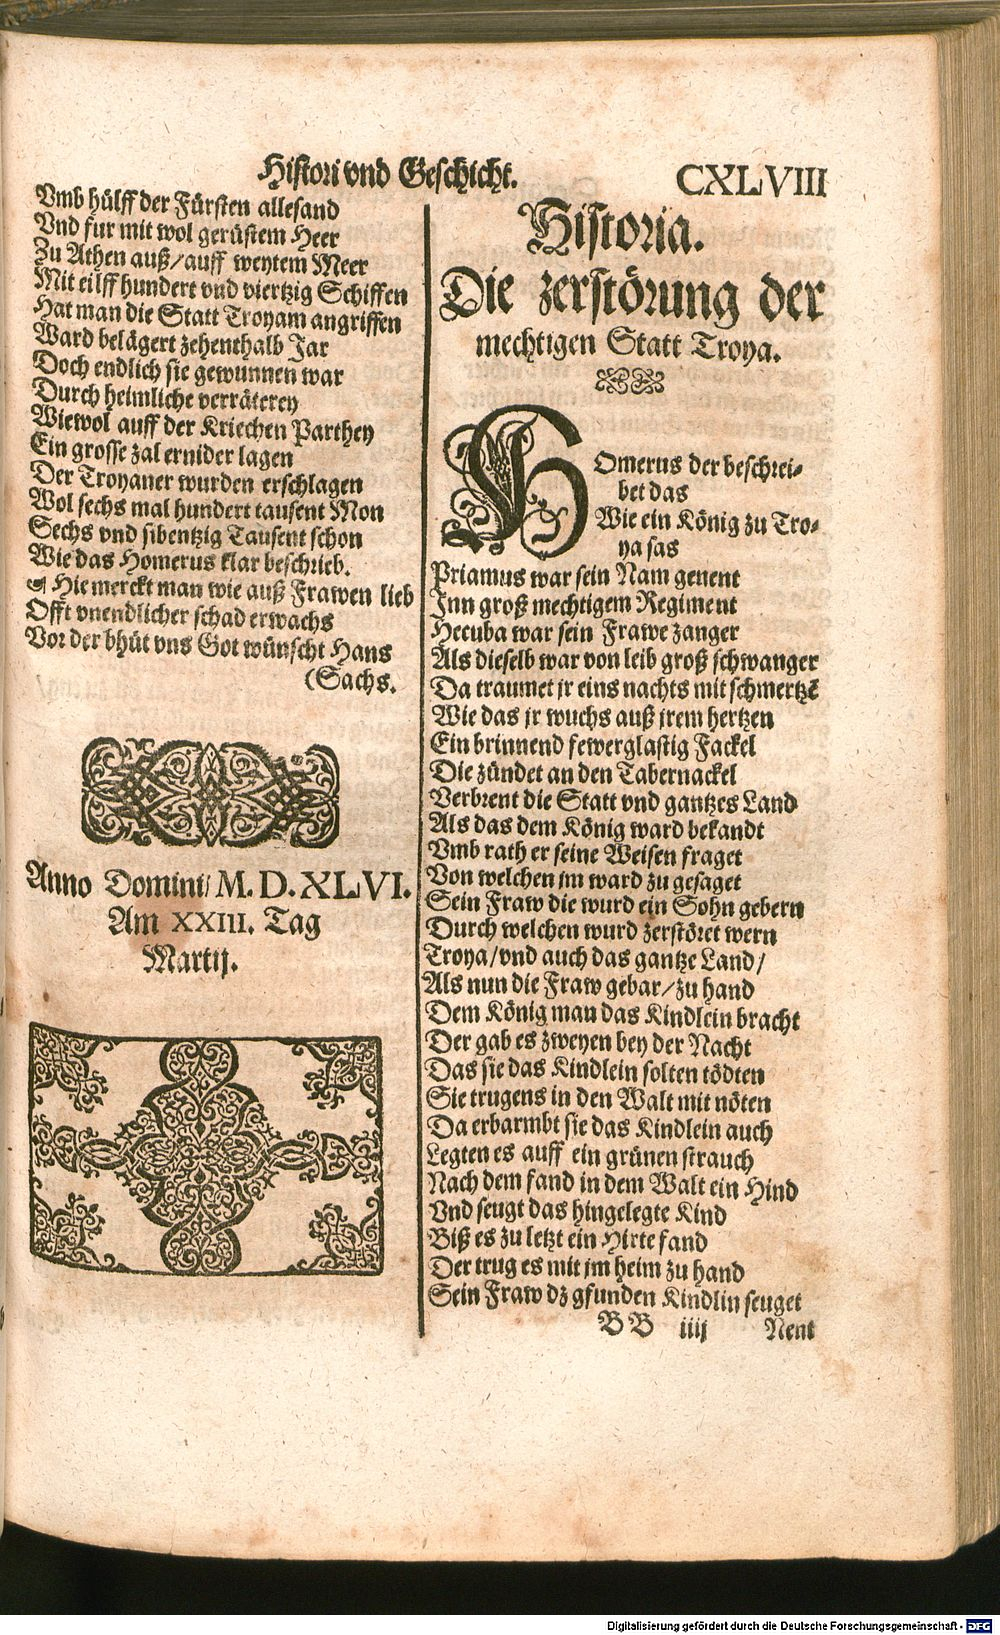 Histori vnd Geschicht. CXLVIII
Vmb hülff der Fürsten allesand
Vnd fur mit wol gerüstem Heer
Zu Athen auß/auff weytem Meer
Mit eilff hundert vnd viertzig Schiffen
Hat man die Statt Troyam angriffen
Ward belägert zehenthalb Jar
Doch endlich sie gewunnen war
Durch heimliche verräterey
Wiewol auff der Kriechen Parthey
Ein grosse zal ernider lagen
Der Troyaner wurden erschlagen
Wol sechs mal hundert tausent Mon
Sechs vnd sibentzig Tausent schon
Wie das Homerus klar beschrieb.
☙ Hie merckt man wie auß Frawen lieb
Offt vnendlicher schad erwachs
Vor der bhüt vns Got wünscht Hans
(Sachs.
Anno Domini/ M. D. XLVI.
Am XXIII. Tag
Martij.
Historia.
Die zerstörung der
mechtigen Statt Troya.
HOmerus der beschrei-
bet das
Wie ein König zu Tro-
ya sas
Priamus war sein Nam genent
Jnn groß mechtigem Regiment
Hecuba war sein Frawe zanger
Als dieselb war von leib groß schwanger
Da traumet jr eins nachts mit schmertzẽ
Wie das jr wuchs auß jrem hertzen
Ein brinnend fewerglastig Fackel
Die zündet an den Tabernackel
Verbrent die Statt vnd gantzes Land
Als das dem König ward bekandt
Vmb rath er seine Weisen fraget
Von welchen jm ward zu gesaget
Sein Fraw die wurd ein Sohn gebern
Durch welchen wurd zerstöret wern
Troya/vnd auch das gantze Land/
Als nun die Fraw gebar/zu hand
Dem König man das Kindlein bracht
Der gab es zweyen bey der Nacht
Das sie das Kindlein solten tödten
Sie trugens in den Walt mit nöten
Da erbarmbt sie das Kindlein auch
Legten es auff ein grünen strauch
Nach dem fand in dem Walt ein Hind
Vnd seugt das hingelegte Kind
Biß es zu letzt ein Hirte fand
Der trug es mit jm heim zu hand
Sein Fraw dz gfunden Kindlin seuget
BB iiij Nent
Digitalisierung gefördert durch die Deutsche Forschungsgemeinschaft - DFG